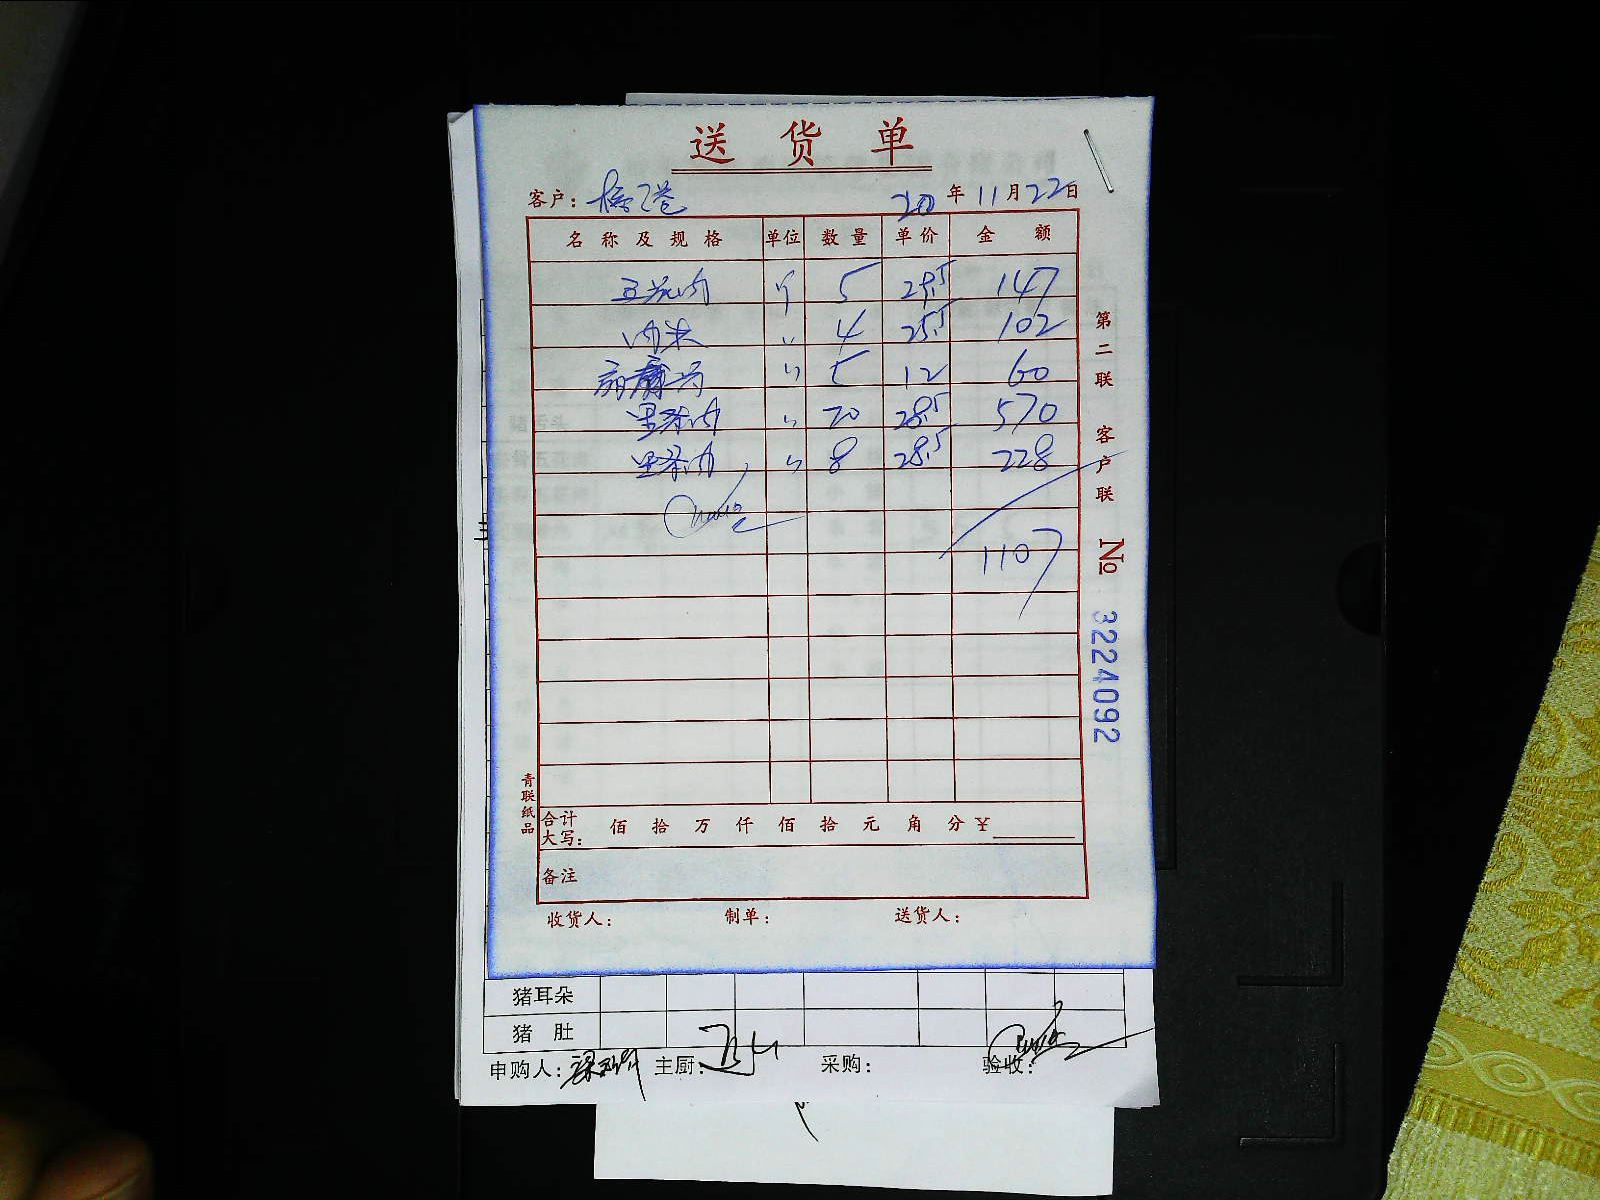 送货单
客户： 20年11月22日
名称及规格 单位 数量 单价 金额
五花肉 斤 5 29.5 147
肉米 〃 4 25.5 102
〃 5 12 60
里脊肉 〃 20 28.5 570
里脊肉 〃 8 28.5 228
1107
合计大写： 佰 拾 万 仟 佰 拾 元 角 分 ¥
备注
收货人： 制单： 送货人：
青联纸品
第二联 客户联 № 3224092
猪耳朵
猪肚
申购人： 主厨： 采购： 验收：